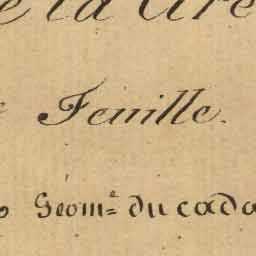 e la
Feuille.
Géom.e du cada